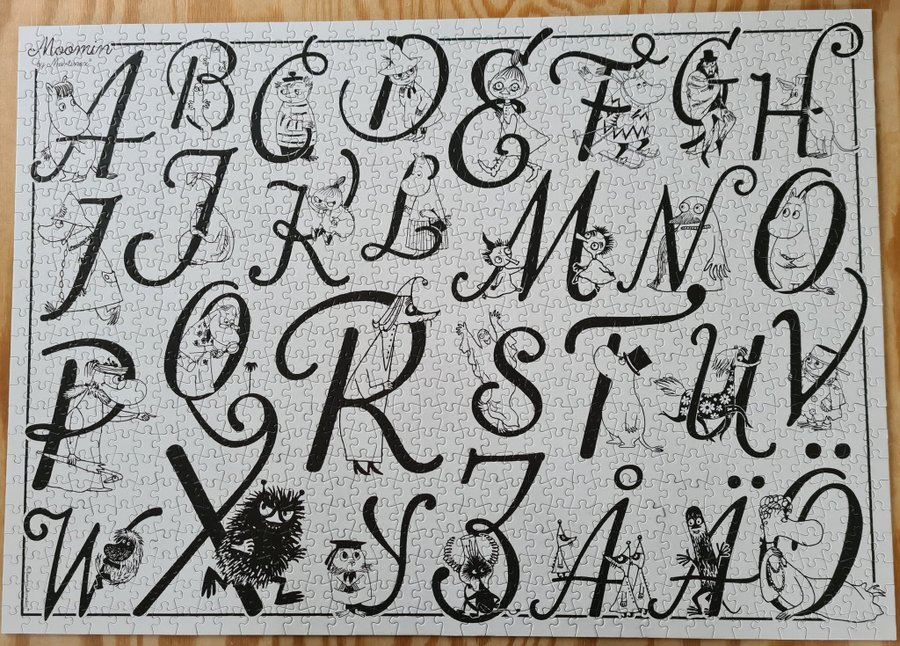 Moomin
by Martinex
A B C D E F G H
I J K L M N O
P Q R S T U V
W X Y Z Å Ä Ö